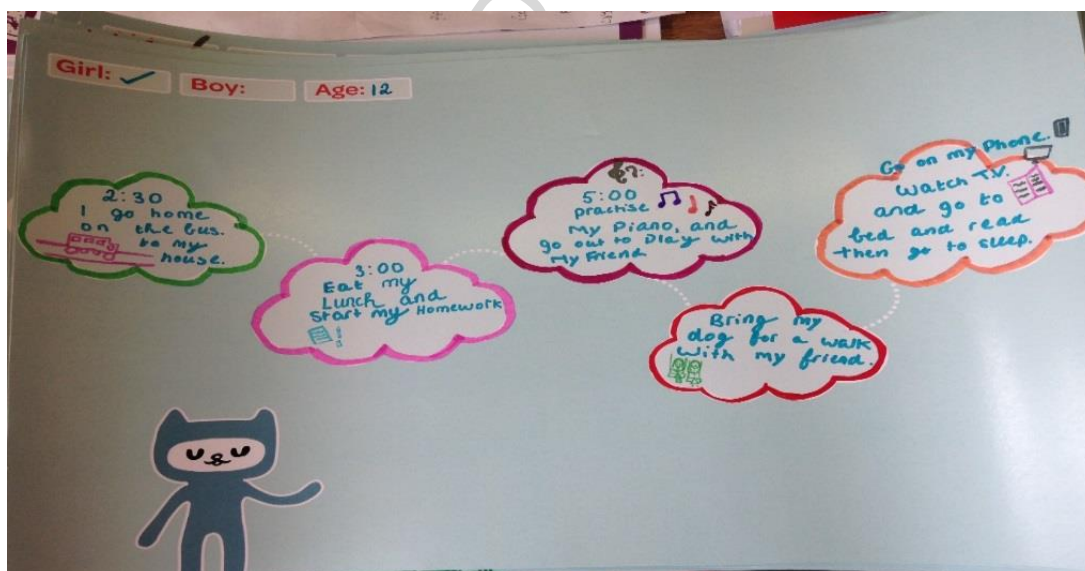 Girl: ✓
Boy:
Age: 12
2:30
I go home
on the bus.
to my
house.
3:00
Eat my
Lunch and
Start my Homework
5:00
Practise
My Piano, and
go out to Play with
My Friend
Bring my
dog for a walk
with my friend.
Go on my Phone.
Watch T.V.
and go to
bed and read
then go to sleep.